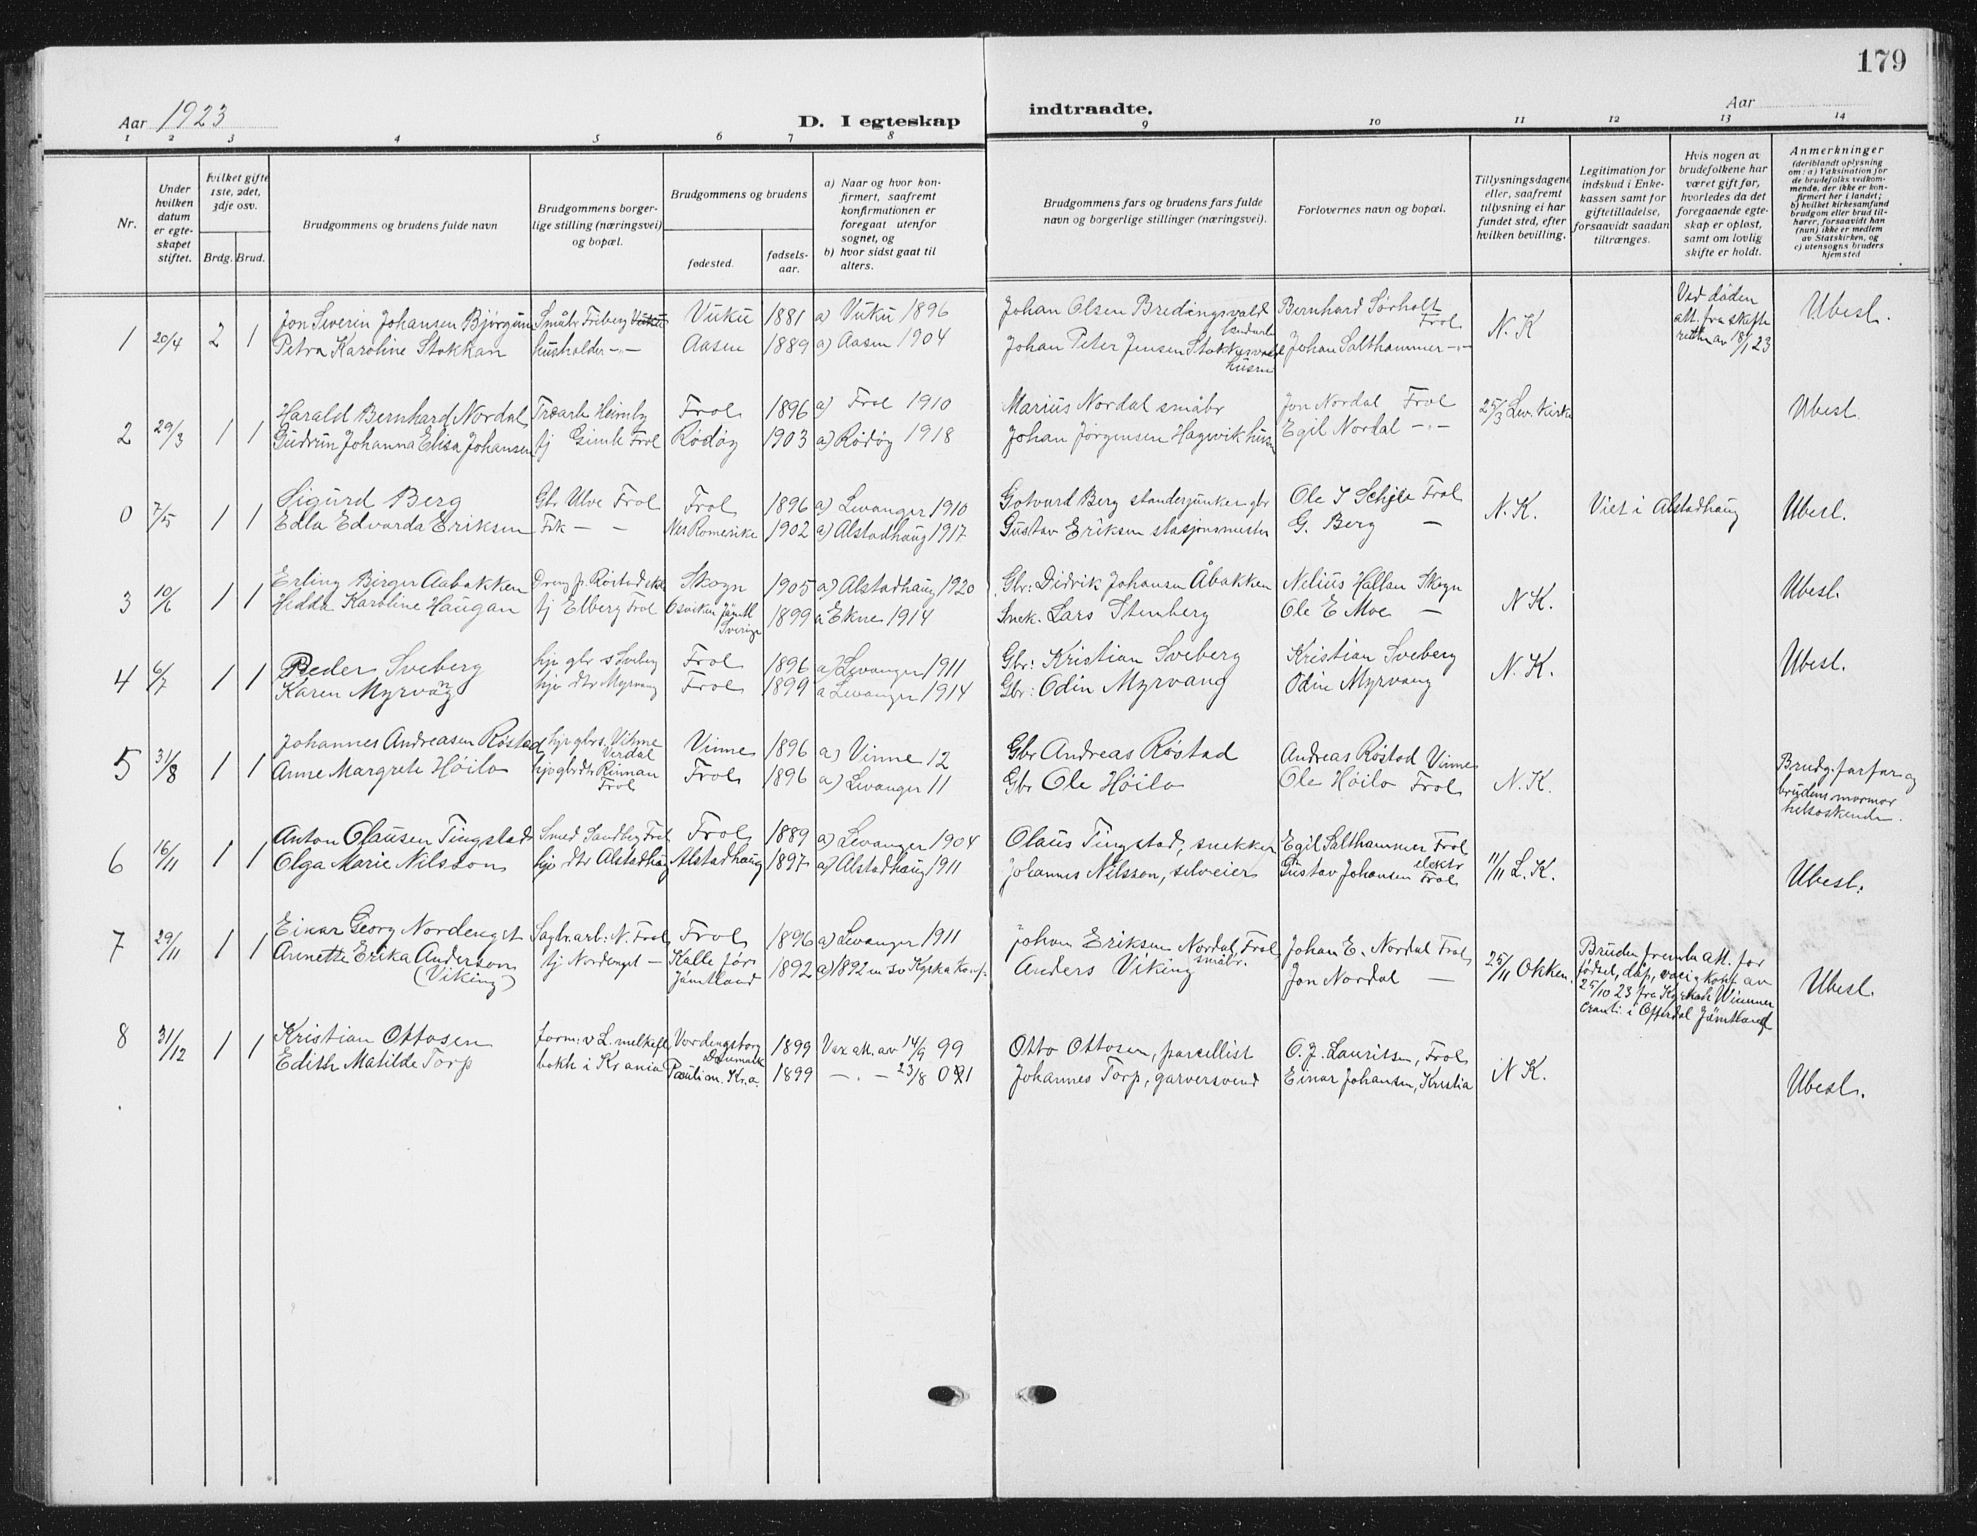 179
Aar 1923
D. I egteskap indtraadte.
Aar
1 2 3 4 5 6 7 8 9 10 11 12 13 14
Nr.
Under hvilken datum er egteskapet stiftet.
Hvilket gifte 1ste, 2det, 3dje osv.
Brdg. Brud.
Brudgommens og brudens fulde navn
Brudgommens borgerlige stilling (næringsvei) og bopæl.
Brudgommens og brudens
fødested.
fødselsaar.
a) Naar og hvor konfirmert, saafremt konfirmationen er foregaat utenfor sognet, og
b) hvor sidst gaat til alters.
Brudgommens fars og brudens fars fulde navn og borgerlige stillinger (næringsvei).
Forlovernes navn og bopæl.
Tillysningsdagene eller, saafremt tillysning ei har fundet sted, efter hvilken bevilling.
Legitimation for indskud i Enkekassen samt for giftetilladelse, forsaavidt saadan tiltrænges.
Hvis nogen av brudefolkene har været gift før, hvorledes da det foregaaende egteskap er opløst, samt om lovlig skifte er holdt.
Anmerkninger
(deriblandt oplysning om: a) Vaksination for de brudefolks vedkommende, der ikke er konfirmert her i landet;
b) hvilket kirkesamfund brudgom eller brud tilhører, forsaavidt han (hun) ikke er medlem av Statskirken, og
c) utensogns bruders hjemsted
1 20/4 2 1 Jon Severin Johansen Bjørgum Småbr Friberg Vuku Vuku 1881 a) Vuku 1896 Johan Olsen Bredingsvald Bernhard Sørholt Frol N. K Ved døden att. fra skifteretten av 18/1 23 Ubesl.
Petra Karoline Stokkan husholder -"- Aasen 1889 a) Aasen 1904 Johan Peter Jensen Stokkesvald husm Johan Salthammer -"-
2 29/3 1 1 Harald Bernhard Nordal Træarb Heimly Frol 1896 a) Frol 1910 Marius Nordal småbr Jon Nordal Frol 25/3 Lev. kirke Ubesl.
Gudrun Johanna Elisa Johansen tj Gimle Frol Rødøy 1903 a) Rödöy 1918 Johan Jørgensen Hagevik husm Egil Nordal -"-
0 7/5 1 1 Sigurd Berg Gbr Ulve Frol Frol 1896 a) Levanger 1910 Gotvard Berg standerjunker gbr Ole I Schjie Frol N. K. Viet i Alstadhaug Ubesl.
Edla Edvarda Eriksen Frk — — Nes Romerike 1902 a) Alstadhaug 1917 Gustav Eriksen stasjonsmester G. Berg —
3 10/6 1 1 Erling Birger Aabakken Dreng p. Röstad skole Skogn 1905 a) Alstadhaug 1920 Gbr: Didrik Johansen Åbakken Nelius Hallan Skogn N K. Ubesl.
Hedda Karoline Haugan tj Elberg Frol Osviken Jämtl Sverige 1899 a Ekne 1914 Snek. Lars Stenberg Ole E Moe —
4 6/7 1 1 Peder Sveberg hjv gbr s Sveberg Frol 1896 a) Levanger 1911 Gbr: Kristian Sveberg Kristian Sveberg N. K. Ubesl.
Karen Myrvang hjv dtr Myrvang Frol 1899 a Levanger 1914 Gbr: Odin Myrvang Odin Myrvang
5 31/8 1 1 Johannes Andreasen Røstad hjv gbrs. Vinne Verdal Vinne 1896 a) Vinne 12 Gbr Andreas Røstad Andreas Røstad Vinne N. K. Brudg. farfar og brudens mormor helsøskende.
Anne Margrete Høilo hjv gbrdtr Rinnan Frol Frol 1896 a) Levanger 11 Gbr Ole Høilo Ole Høilo Frol
6 16/11 1 1 Anton Olausen Tingstad Smed Sandberg Frol Frol 1889 a) Levanger 1904 Olaus Tingstad, snekker Egil Salthammer Frol 11/11 L. K. Ubesl.
Olga Marie Nilsson hjv dtr Alstadhaug Alstadhaug 1897 a) Alstadhaug 1911 Johannes Nilsson, selveier Gustav Johansen elektr Frol
7 29/11 1 1 Einar Georg Nordenget Sagbr.arb: N. Frol Frol 1896 a) Levanger 1911 Johan Eriksen Nordal, Frol småbr. Johan E. Nordal Frol 25/11 Okken. Ubesl.
Annette Erika Anderson (Viking) tj Nordenget — Kalle för Jämtland 1892 a) 1892 Anders Viking Jon Nordal —
Bruden fremla att. for fødsel, dåp, vac og konf av 25/10 23 i Offerdal Jämtland
8 31/12 1 1 Kristian Ottosen form: v L. melkefb Vordengborg Danmark 1899 Vax att. av 14/9 99 Otto Ottosen, parcellist O. J. Lauritsen, Frol N K. Ubesl.
Edith Matilde Torp bokh i Kr ania Kr.a. 1899 —.— 23/8 01 Johannes Torp, garversvend Einar Johansen, Kristia